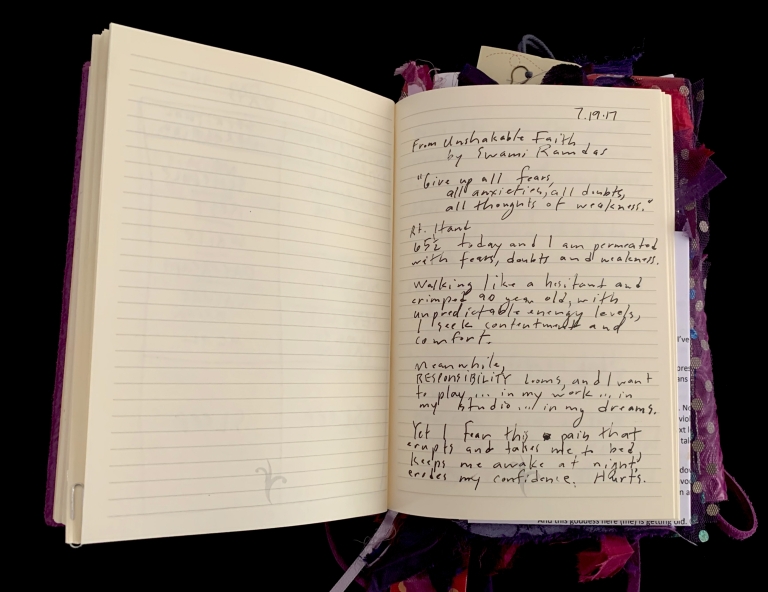 7.19.17
From Unshakable Faith
by Swami Ramdas
"Give up all fears,
all anxieties, all doubts,
all thoughts of weakness."
Rt. Hand
65½ today and I am permeated
with fears, doubts and weakness.
Walking like a hesitant and
crimped 90 year old, with
unpredictable energy levels,
I seek contentment and
comfort.
Meanwhile,
RESPONSIBILITY Looms, and I want
to play... in my work... in
my studio.... in my dreams.
Yet I fear this pain that
erupts and takes me to bed,
keeps me awake at night,
erodes my confidence. Hurts.
I've
pres
ans
. No
viol
ext l
tal
dov
vou
n a
And this goddess here (me) is getting old.